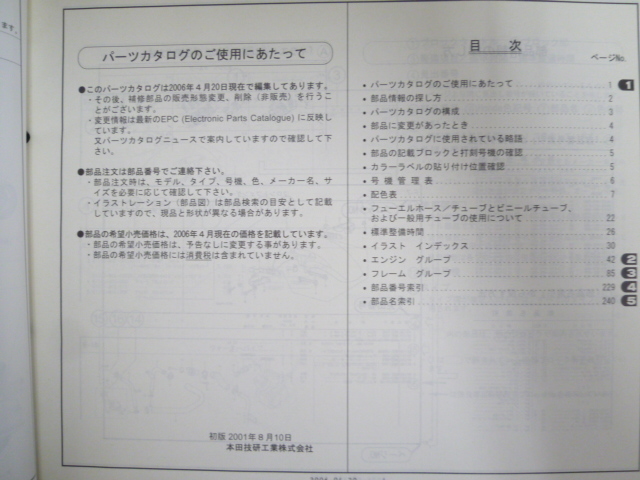 ます。
パーツカタログのご使用にあたって
●このパーツカタログは2006年4月20日現在で編集してあります。
・その後、補修部品の販売形態変更、削除（非販売）を行うこ
とがございます。
・変更情報は最新のEPC (Electronic Parts Catalogue) に反映し
ています。
又パーツカタログニュースで案内していますので確認して下
さい。
●部品注文は部品番号でご連絡下さい。
・部品注文時は、モデル、タイプ、号機、色、メーカー名、サ
イズを必要に応じて確認して下さい。
・イラストレーション（部品図）は部品検索の目安として記載
していますので、現品と形状が異なる場合があります。
●部品の希望小売価格は、2006年4月現在の価格を記載しています。
・部品の希望小売価格は、予告なしに変更する事があります。
・部品の希望小売価格には消費税は含まれていません。
初版 2001年8月10日
本田技研工業株式会社
目 次
ページNo.
• パーツカタログのご使用にあたって 1 1
• 部品情報の探し方 2
• パーツカタログの構成 3
• 部品に変更があったとき 4
• パーツカタログに使用されている略語 4
• 部品の記載ブロックと打刻号機の確認 5
• カラーラベルの貼り付け位置確認 5
• 号機管理表 6
• 配色表 7
• フューエルホース／チューブとビニールチューブ、
および一般用チューブの使用について 22
• 標準整備時間 26
• イラスト インデックス 30
• エンジン グループ 42 2
• フレーム グループ 85 3
• 部品番号索引 229 4
• 部品名索引 240 5